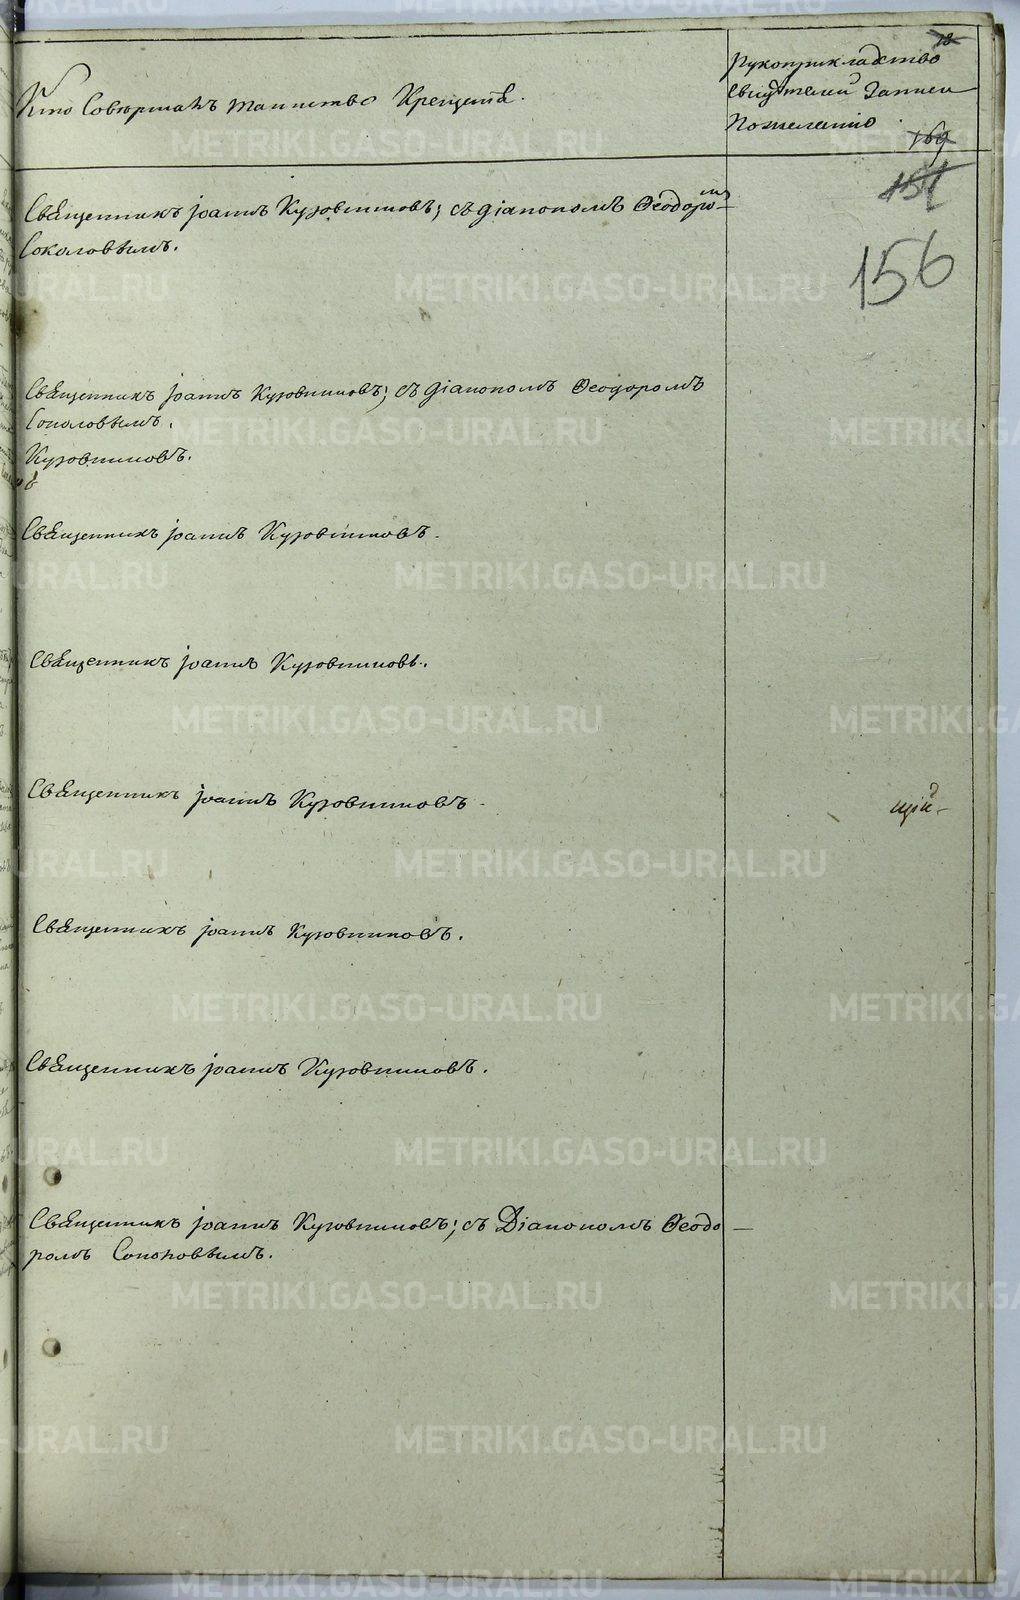 12
Кто Совершалъ таинство Крещенія.
Рукоприкладство
Свидѣтелей Записи
Пожеланію.
169
151
156
Священникъ Іоаннъ Кузовниковъ; съ діакономъ Ѳеодоромъ
Соколовымъ.
Священникъ Іоаннъ Кузовниковъ; съ діакономъ Ѳеодоромъ
Соколовымъ.
Кузовниковъ.
Священникъ Іоаннъ Кузовниковъ.
Священникъ Іоаннъ Кузовниковъ.
Священникъ Іоаннъ Кузовниковъ.
щій
Священникъ Іоаннъ Кузовниковъ.
Священникъ Іоаннъ Кузовниковъ.
Священникъ Іоаннъ Кузовниковъ; съ Діакономъ Ѳеодо
ромъ Соколовымъ.
METRIKI.GASO-URAL.RU